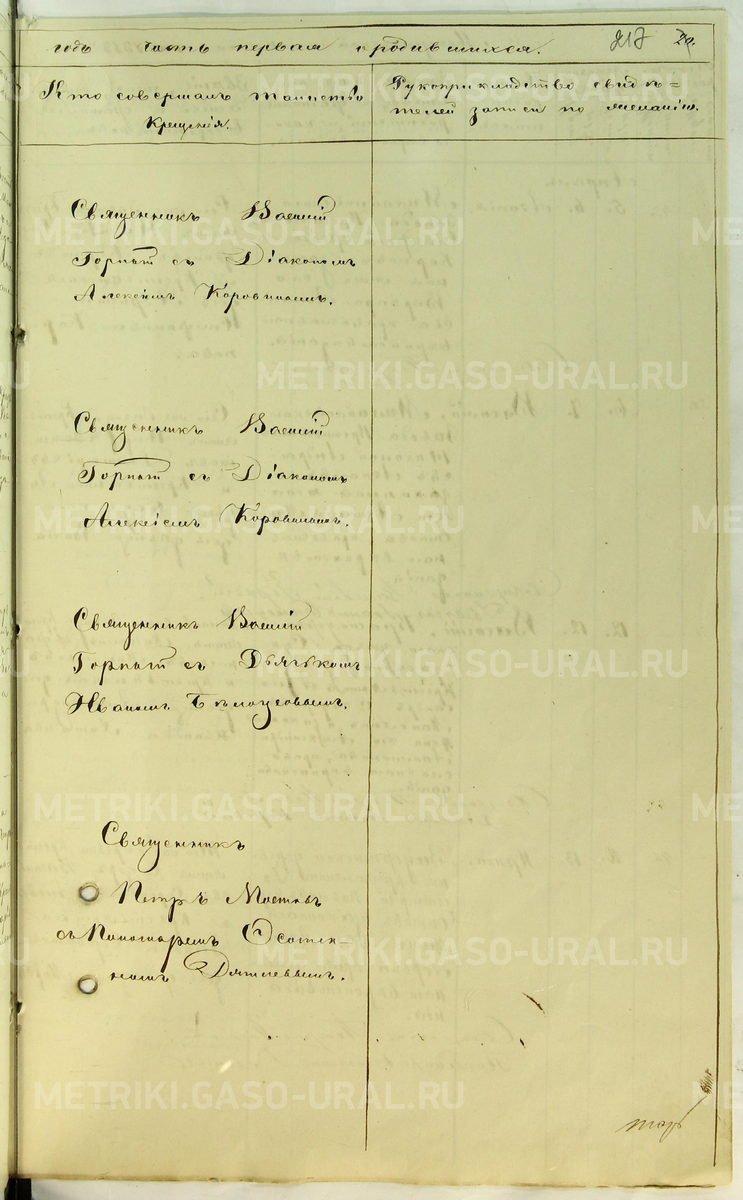 годъ часть первая о родившихся. 217
Кто совершалъ таинство
Крещенія.
Рукоприкладство свидѣ=
телей записи по желанію.
Священникъ Василій
съ Діакономъ
Алексіемъ Коровинымъ.
Священникъ Василій
съ Діакономъ
Алексіемъ Коровинымъ.
Священникъ Василій
съ Дьячкомъ
Иваномъ Бѣлоусовымъ.
Священникъ
Петръ
съ Пономаремъ
METRIKI.GASO-URAL.RU